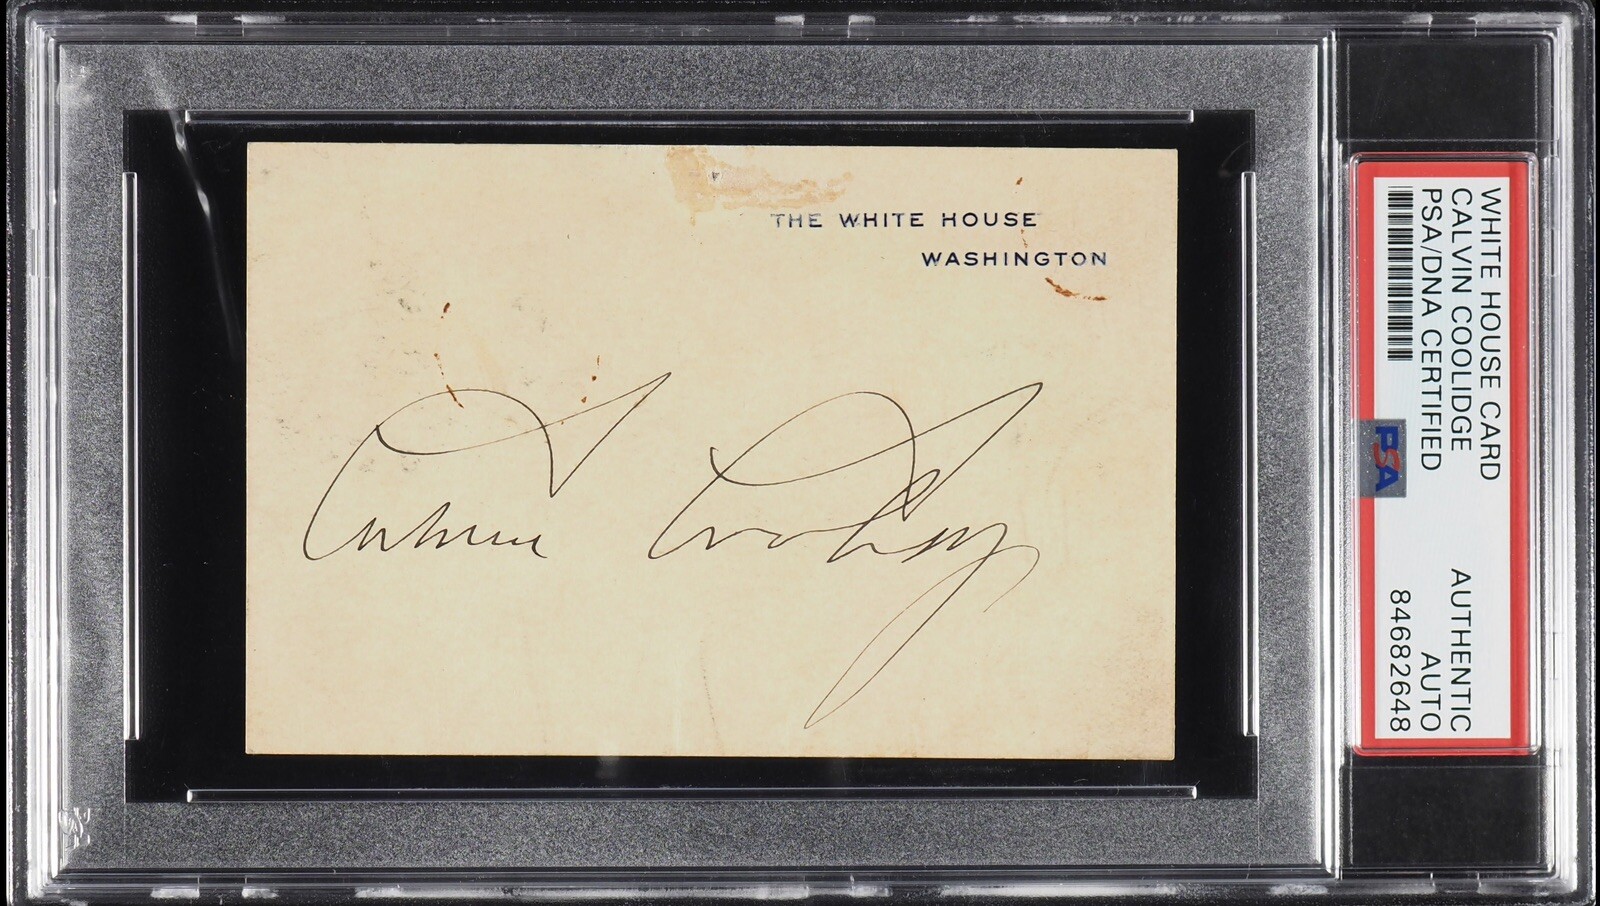 THE WHITE HOUSE
WASHINGTON
Calvin Coolidge
WHITE HOUSE CARD
CALVIN COOLIDGE
PSA/DNA CERTIFIED
AUTHENTIC
AUTO
84682648
PSA